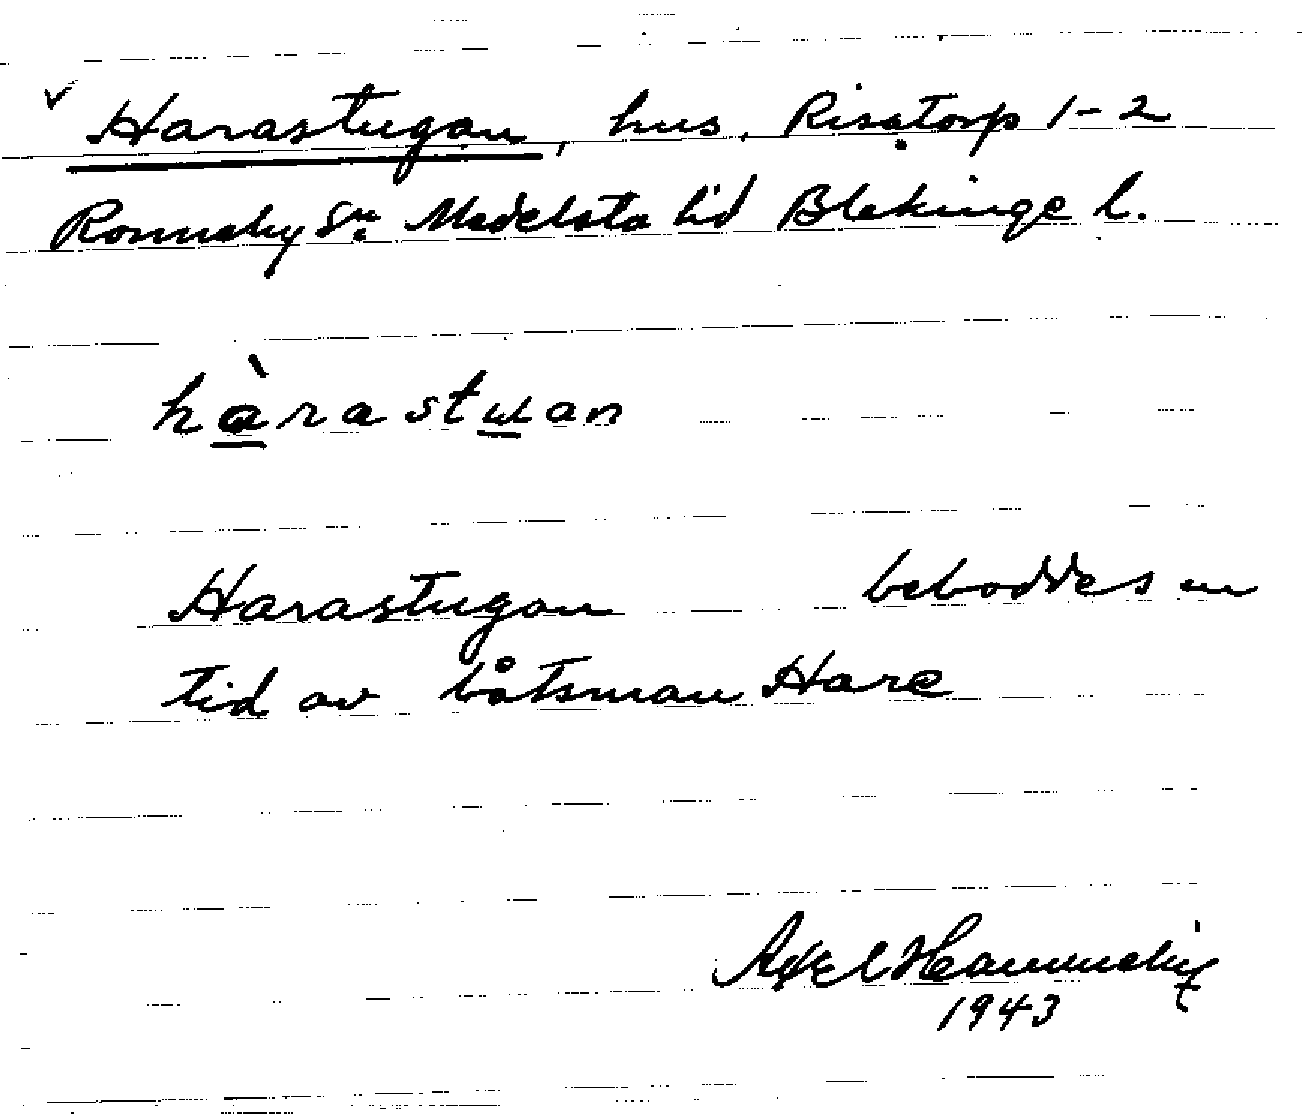 v Harastugan, hus, Risatorp 1-2
Ronneby sn. Medelsta hd Blekinge l.
hàrastuan
Harastugan beboddes en
tid av båtsman Hare
Axel
1943